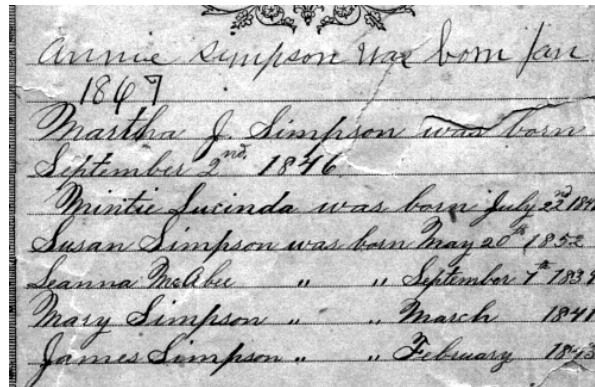 Annie Simpson was born Jan
1867
Martha J. Simpson was born
September 2nd, 1846
Mintie Lucinda was born July 22nd
Susan Simpson was born May 20th 1852
Leanna McAbee " " September 7th 1839
Mary Simpson " " March 1841
James Simpson " " February 1843